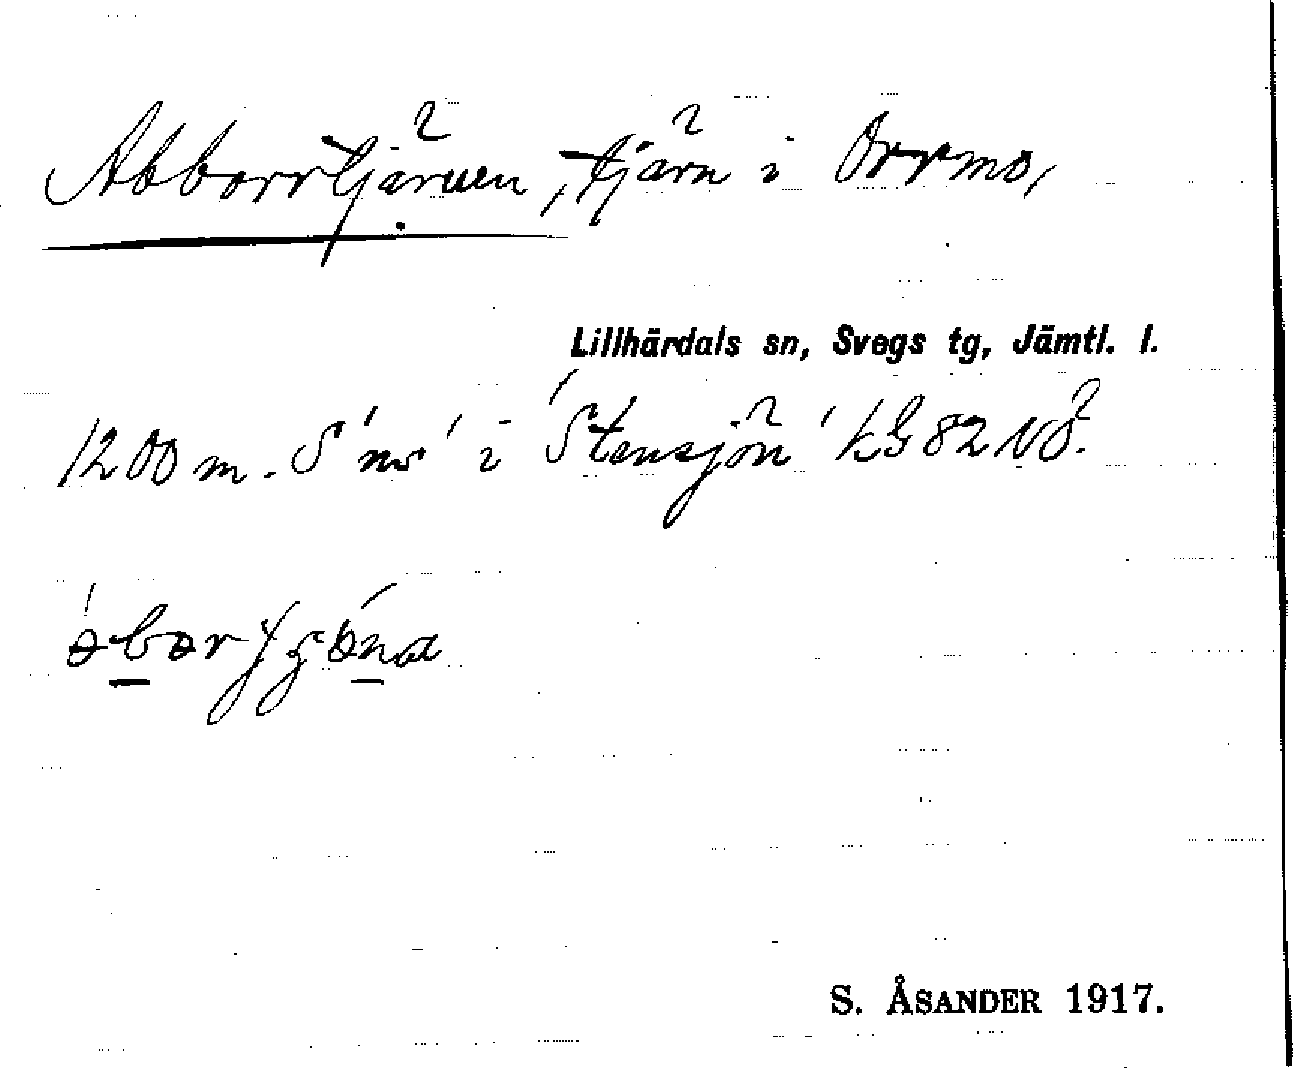 Abborrtjärnen, tjärn i Orrmo,
Lillhärdals sn, Svegs tg, Jämtl. l.
1200 m. S 'nr' i 'Stensjön' kG 82 NÖ.
S. ÅSANDER 1917.